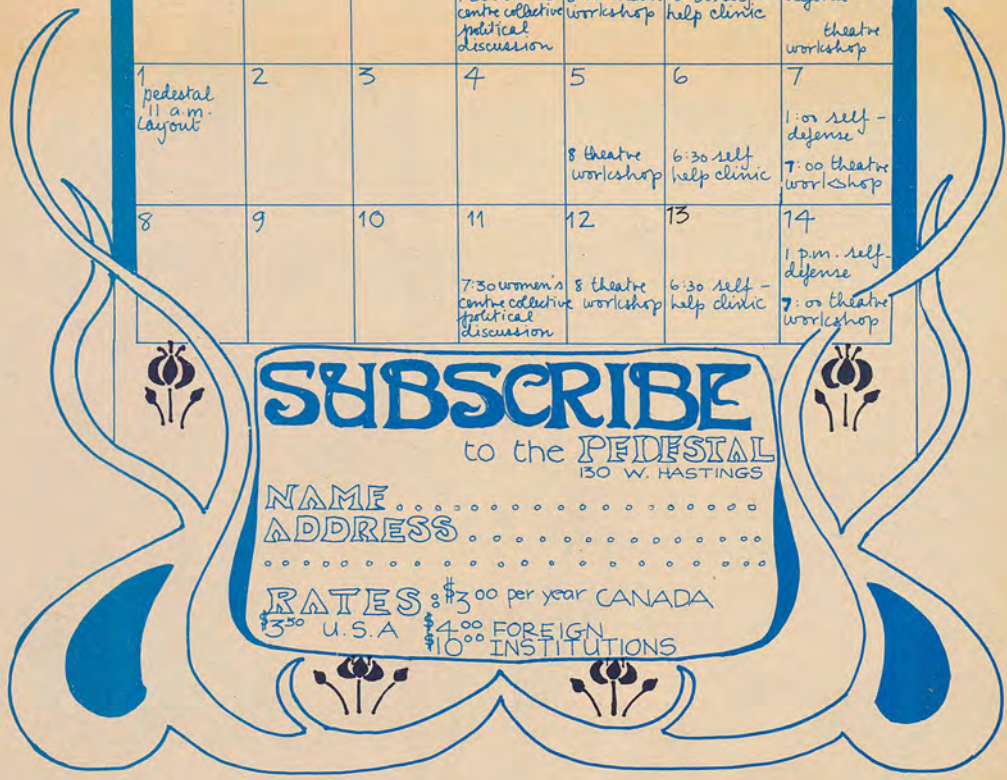 centre collective
political
discussion
workshop
help clinic
theatre
workshop
1
pedestal
11 a.m.
layout
2
3
4
5
8 theatre
workshop
6
6:30 self
help clinic
7
1:00 self-
defense
7:00 theatre
workshop
8
9
10
11
7:30 women's
centre collective
political
discussion
12
8 theatre
workshop
13
6:30 self-
help clinic
14
1 p.m. self-
defense
7:00 theatre
workshop
SUBSCRIBE
to the PEDESTAL
130 W. HASTINGS
NAME
ADDRESS
RATES: $3.00 per year CANADA
$3.50 U.S.A $4.00 FOREIGN
$10.00 INSTITUTIONS